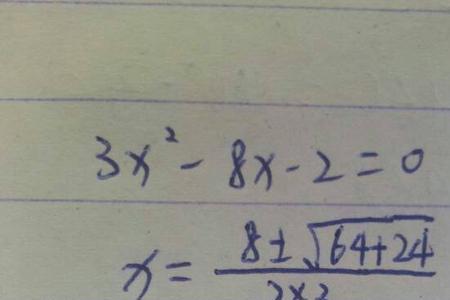 3x² - 8x - 2 = 0
x = 8 ± √64+24
2×3